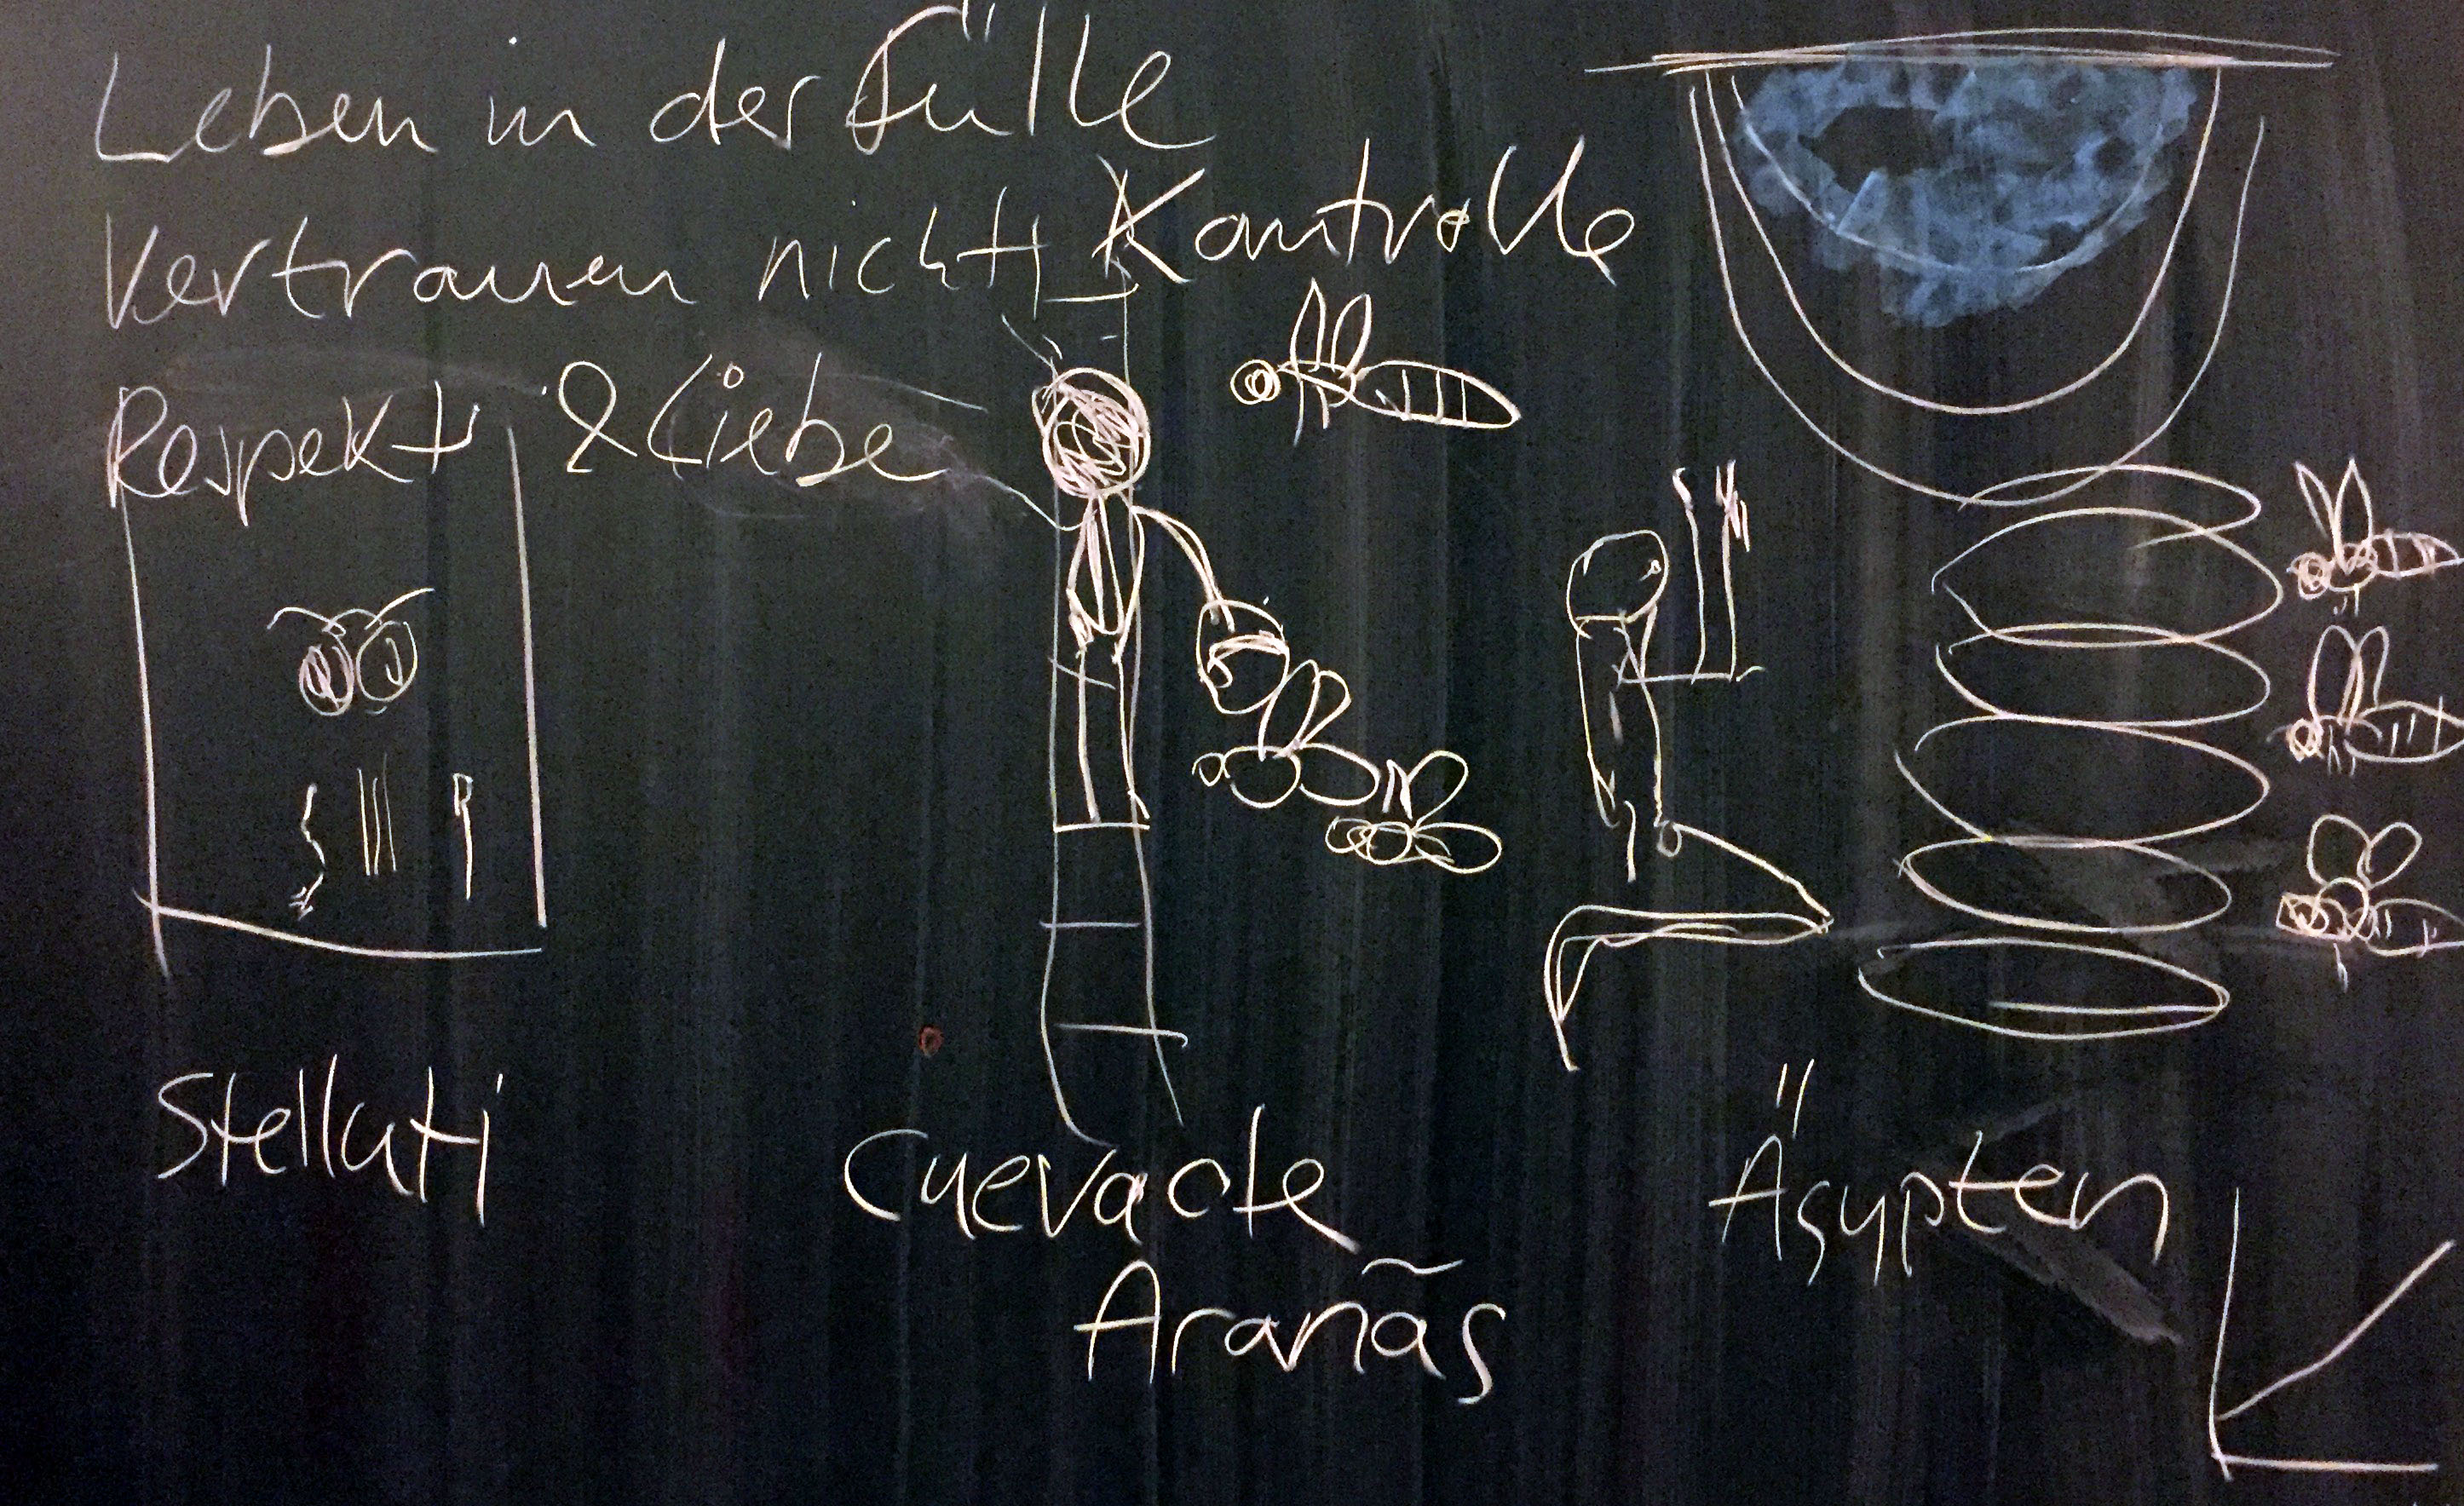 Leben in der Fülle
Vertrauen nicht Kontrolle
Respekt & Liebe
Stelluti
Cuevade
Aranãs
Ägypten